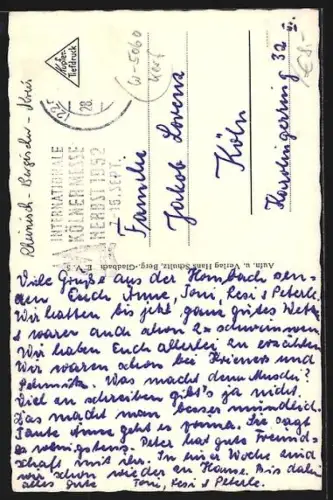 Rheinisch-Bergischer-Kreis
Kupfer-
Tiefdruck
W-5060
28.
INTERNATIONALE
KÖLNER MESSE
HERBST 1952
7.-16. SEPT.
Familie
Jakob Lorenz
Köln
Karolingerring 32
Aufn. u. Verlag Hans Schultz, Berg.-Gladbach
Viele Grüße aus der Hombach sen-
den Euch Anne, Toni, Resi & Peterle.
Wir hatten bis jetzt ganz gutes Wetter
& waren auch schon 2 x schwimmen
Wir haben Euch allerlei zu erzählen
Wir waren schon bei Krieners und
Was macht denn
Viel an schreiben gibt's ja nicht.
Das macht man besser mündlich.
Tante Anne geht es prima. Sie sagt
es wenigstens. Peter hat gute Freund-
schaft mit ihr. In einer Woche sind
wir schon wieder zu Hause. Bis dahin
alles Gute Toni, Resi & Peterle